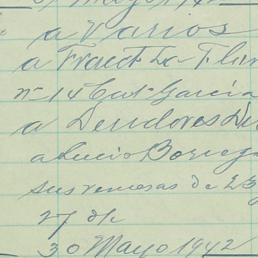 a Varios
a Fract La Flor
nº 14 Cat García
a Deudores Di
a Lucio Borreg
sus remesas de 23
27 de
30 Mayo 1942